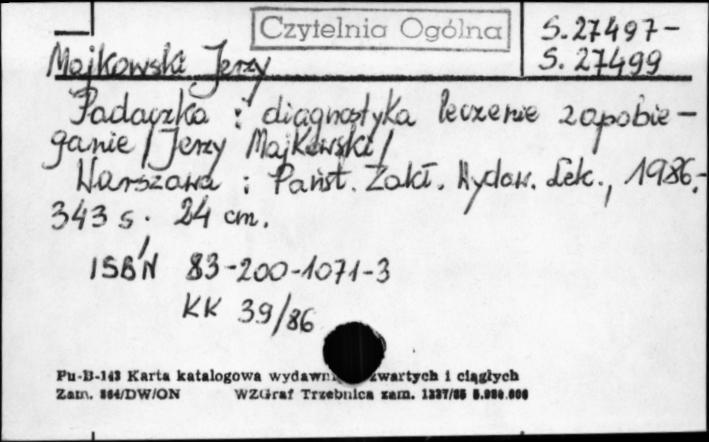 Czytelnia Ogólna
S.27497-
S. 27499
Majkowski Jerzy
Padaczka : diagnostyka leczenie zapobie-
ganie / Jerzy Majkowski /
Warszawa : Państ. Zakł. Wydaw. Lek., 1986.-
343 s. 24 cm.
ISBN 83-200-1071-3
KK 39/86
Pu-B-143 Karta katalogowa wydawn zwartych i ciągłych
Zam. 864/DW/ON WZGraf Trzebnica zam. 1337/85